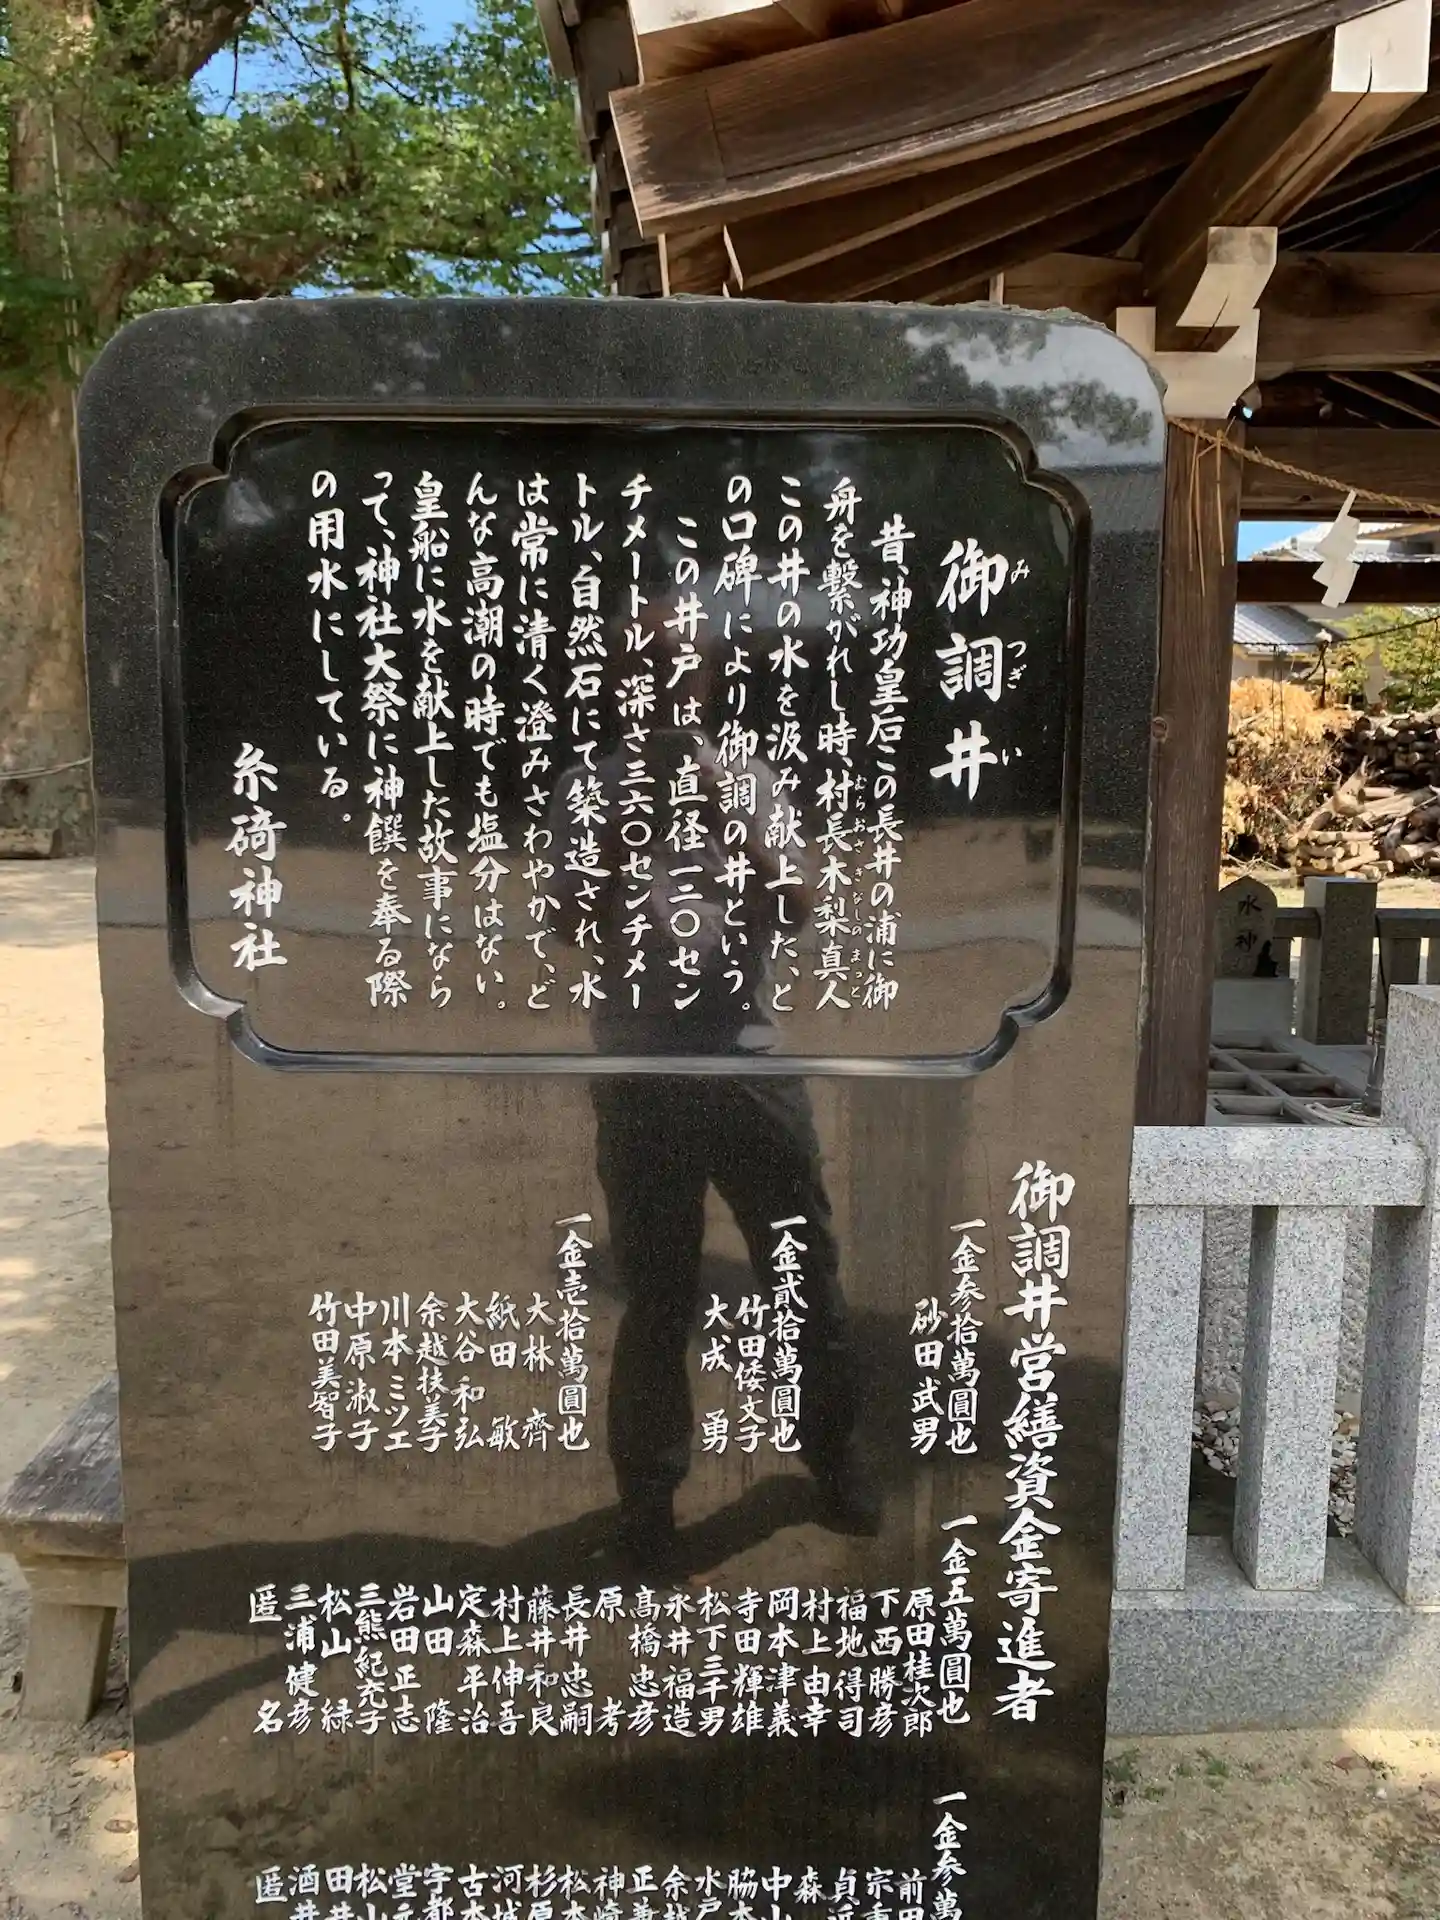 御調井
みつぎい
昔、神功皇后この長井の浦に御
舟を繋がれし時、村長木梨真人
むらおさきなしのまっと
この井の水を汲み献上した、と
の口碑により御調の井という。
この井戸は、直径一二〇セン
チメートル、深さ三六〇センチメー
トル、自然石にて築造され、水
は常に清く澄みさわやかで、ど
んな高潮の時でも塩分はない。
皇船に水を献上した故事になら
って、神社大祭に神饌を奉る際
の用水にしている。
糸碕神社
御調井営繕資金寄進者
一金参拾萬圓也
砂田武男
一金貮拾萬圓也
竹田倭文子
大成勇
一金壱拾萬圓也
大林齊
紙田敏
大谷和弘
余越扶美子
川本ミツエ
中原淑子
竹田美智子
一金五萬圓也
原田桂次郎
下西勝彦
福地得司
村上由幸
岡本津義
寺田輝雄
松下三千男
永井福造
髙橋忠彦
原考
長井忠嗣
藤井和良
村上伸吾
定森平治
山田隆
岩田正志
三熊紀充子
松山緑
三浦健彦
匿名
一金参萬
前田
宗重
貞近
森
中山
脇本
水戸
余越
正兼
神崎
松本
杉原
河城
古本
宇都
堂元
松山
田井
酒井
匿
水神